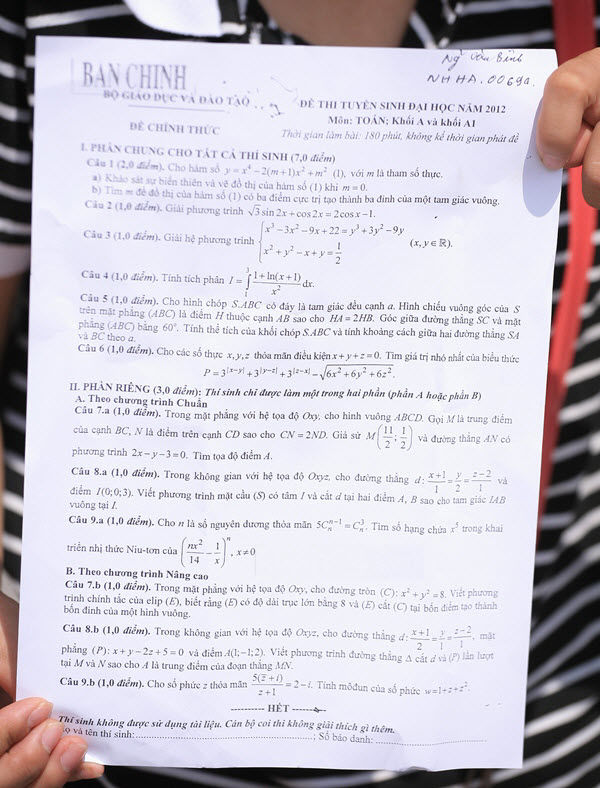 Ng Văn Bình
NHHA.0069a.
BẢN CHÍNH
BỘ GIÁO DỤC VÀ ĐÀO TẠO
ĐỀ CHÍNH THỨC
ĐỀ THI TUYỂN SINH ĐẠI HỌC NĂM 2012
Môn: TOÁN; Khối A và khối A1
Thời gian làm bài: 180 phút, không kể thời gian phát đề
I. PHẦN CHUNG CHO TẤT CẢ THÍ SINH (7,0 điểm)
Câu 1 (2,0 điểm). Cho hàm số y = x⁴ − 2(m+1)x² + m² (1), với m là tham số thực.
a) Khảo sát sự biến thiên và vẽ đồ thị của hàm số (1) khi m = 0.
b) Tìm m để đồ thị của hàm số (1) có ba điểm cực trị tạo thành ba đỉnh của một tam giác vuông.
Câu 2 (1,0 điểm). Giải phương trình √3 sin 2x + cos 2x = 2cos x − 1.
Câu 3 (1,0 điểm). Giải hệ phương trình { x³ − 3x² − 9x + 22 = y³ + 3y² − 9y
x² + y² − x + y = 1/2 (x, y ∈ ℝ).
Câu 4 (1,0 điểm). Tính tích phân I = ∫₁³ (1 + ln(x+1))/x² dx.
Câu 5 (1,0 điểm). Cho hình chóp S.ABC có đáy là tam giác đều cạnh a. Hình chiếu vuông góc của S
trên mặt phẳng (ABC) là điểm H thuộc cạnh AB sao cho HA = 2HB. Góc giữa đường thẳng SC và mặt
phẳng (ABC) bằng 60°. Tính thể tích của khối chóp S.ABC và tính khoảng cách giữa hai đường thẳng SA
và BC theo a.
Câu 6 (1,0 điểm). Cho các số thực x, y, z thỏa mãn điều kiện x + y + z = 0. Tìm giá trị nhỏ nhất của biểu thức
P = 3^|x−y| + 3^|y−z| + 3^|z−x| − √(6x² + 6y² + 6z²).
II. PHẦN RIÊNG (3,0 điểm): Thí sinh chỉ được làm một trong hai phần (phần A hoặc phần B)
A. Theo chương trình Chuẩn
Câu 7.a (1,0 điểm). Trong mặt phẳng với hệ tọa độ Oxy, cho hình vuông ABCD. Gọi M là trung điểm
của cạnh BC, N là điểm trên cạnh CD sao cho CN = 2ND. Giả sử M(11/2; 1/2) và đường thẳng AN có
phương trình 2x − y − 3 = 0. Tìm tọa độ điểm A.
Câu 8.a (1,0 điểm). Trong không gian với hệ tọa độ Oxyz, cho đường thẳng d: (x+1)/1 = y/2 = (z−2)/1 và
điểm I(0;0;3). Viết phương trình mặt cầu (S) có tâm I và cắt d tại hai điểm A, B sao cho tam giác IAB
vuông tại I.
Câu 9.a (1,0 điểm). Cho n là số nguyên dương thỏa mãn 5Cₙⁿ⁻¹ = Cₙ³. Tìm số hạng chứa x⁵ trong khai
triển nhị thức Niu-tơn của (nx²/14 − 1/x)ⁿ, x ≠ 0
B. Theo chương trình Nâng cao
Câu 7.b (1,0 điểm). Trong mặt phẳng với hệ tọa độ Oxy, cho đường tròn (C): x² + y² = 8. Viết phương
trình chính tắc của elip (E), biết rằng (E) có độ dài trục lớn bằng 8 và (E) cắt (C) tại bốn điểm tạo thành
bốn đỉnh của một hình vuông.
Câu 8.b (1,0 điểm). Trong không gian với hệ tọa độ Oxyz, cho đường thẳng d: (x+1)/2 = y/1 = (z−2)/1, mặt
phẳng (P): x + y − 2z + 5 = 0 và điểm A(1;−1;2). Viết phương trình đường thẳng Δ cắt d và (P) lần lượt
tại M và N sao cho A là trung điểm của đoạn thẳng MN.
Câu 9.b (1,0 điểm). Cho số phức z thỏa mãn 5(z̅ + i)/(z + 1) = 2 − i. Tính môđun của số phức w = 1 + z + z².
---------- HẾT ----------
Thí sinh không được sử dụng tài liệu. Cán bộ coi thi không giải thích gì thêm.
ọ và tên thí sinh:..............................; Số báo danh:..............................